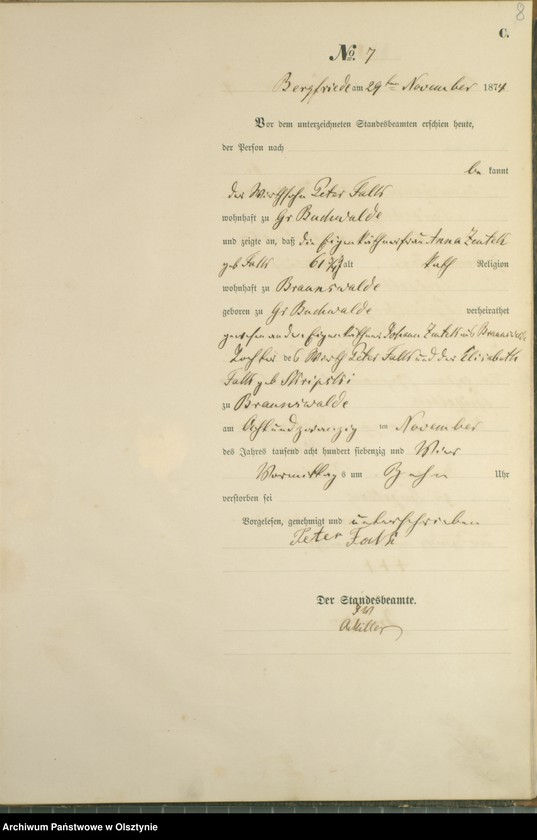 8
C.
No. 7
Bergfriede am 29ten November 1874
Vor dem unterzeichneten Standesbeamten erschien heute,
der Person nach
be kannt
der Wirthsohn Peter Falk
wohnhaft zu Gr Buchwalde
und zeigte an, daß die Eigenkäthnerfrau Anna Zentek
geb Falk 61 alt kath Religion
wohnhaft zu Braunswalde
geboren zu Gr Buchwalde verheirathet
gewesen an den Eigenkäthner Johann Zentek aus Braunswalde
Tochter des Wirth Peter Falk und der Elisabeth
Falk geb Skripski
zu Braunswalde
am Acht und zwanzig ten November
des Jahres tausend acht hundert siebenzig und Vier
Vormittag s um Zehn Uhr
verstorben sei
Vorgelesen, genehmigt und unterschrieben
Peter Falk
Der Standesbeamte.
AMiller
Archiwum Państwowe w Olsztynie